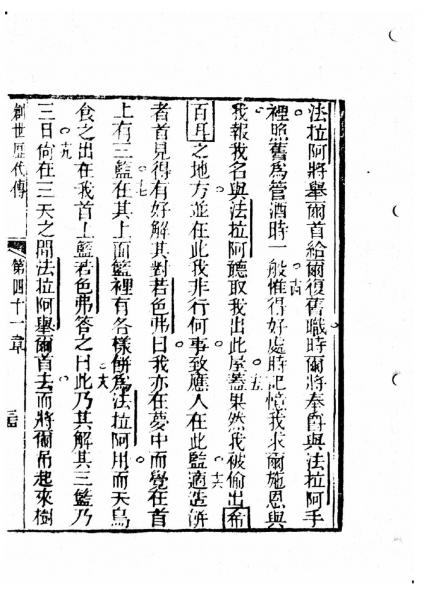 法拉阿將舉爾首給爾復舊職時爾將奉爵與法拉阿手
裡照舊爲管酒時一般惟得好處時記憶我求爾施恩與
十四
我報我名與法拉阿聽取我出此屋蓋果然我被偷出希
十五
百耳之地方並在此我非行何事致應人在此監適造餅
十六
者首見得有好解其對若色弗曰我亦在夢中而覺在首
十七
上有三籃在其上面籃裡有各樣餅爲法拉阿用而天鳥
食之出在我首上籃若色弗答之曰此乃其解其三籃乃
十八
三日尙在三天之間法拉阿舉爾首去而將爾吊起來樹
十九
創世歷代傳
第四十一章